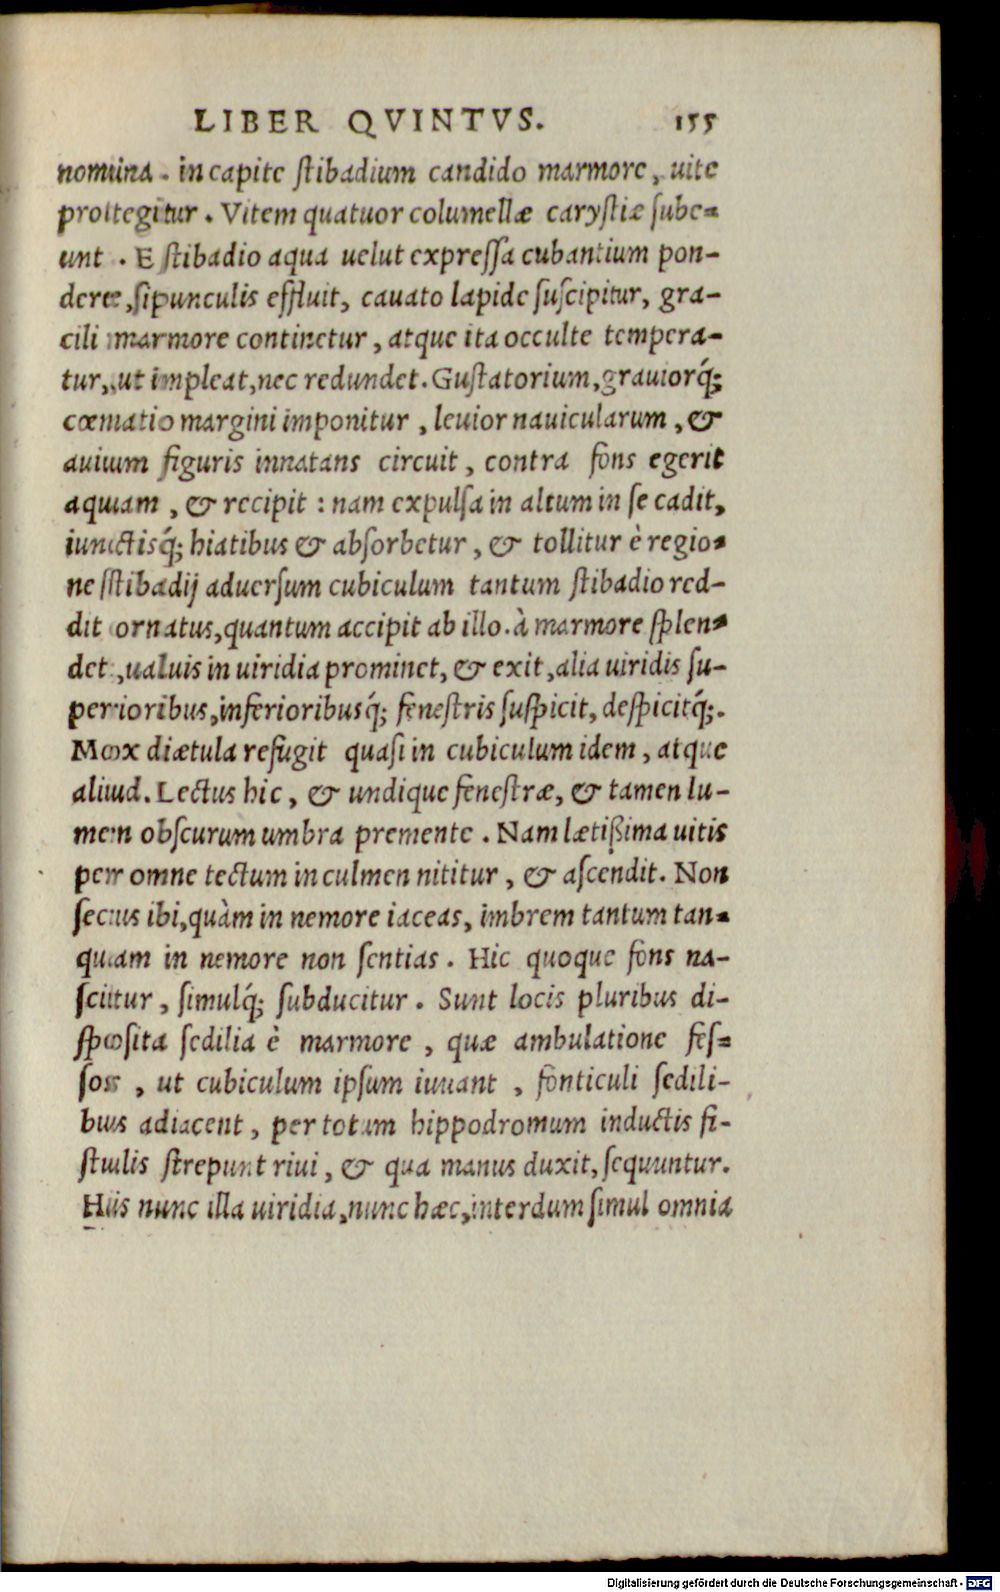 LIBER QVINTVS. 155
nomina. in capite stibadium candido marmore, uite
protegitur. Vitem quatuor columellæ carystiæ sube-
unt. E stibadio aqua uelut expressa cubantium pon-
dere, sipunculis effluit, cauato lapide suscipitur, gra-
cili marmore continetur, atque ita occulte tempera-
tur, ut impleat, nec redundet. Gustatorium, grauiorq́;
cœnatio margini imponitur, leuior nauicularum, &
auium figuris innatans circuit, contra fons egerit
aquam, & recipit: nam expulsa in altum in se cadit,
iunctisq́; hiatibus & absorbetur, & tollitur è regio-
ne stibadij aduersum cubiculum tantum stibadio red-
dit ornatus, quantum accipit ab illo. à marmore splen-
det, ualuis in uiridia prominet, & exit, alia uiridis su-
perioribus, inferioribusq́; fenestris suspicit, despicitq́;.
Mox diætula refugit quasi in cubiculum idem, atque
aliud. Lectus hic, & undique fenestræ, & tamen lu-
men obscurum umbra premente. Nam lætißima uitis
per omne tectum in culmen nititur, & ascendit. Non
secus ibi, quàm in nemore iaceas, imbrem tantum tan-
quam in nemore non sentias. Hic quoque fons na-
scitur, simulq́; subducitur. Sunt locis pluribus di-
sposita sedilia è marmore, quæ ambulatione fes-
sos, ut cubiculum ipsum iuuant, fonticuli sedili-
bus adiacent, per totum hippodromum inductis fi-
stulis strepunt riui, & qua manus duxit, sequuntur.
His nunc illa uiridia, nunc hæc, interdum simul omnia
Digitalisierung gefördert durch die Deutsche Forschungsgemeinschaft - DFG